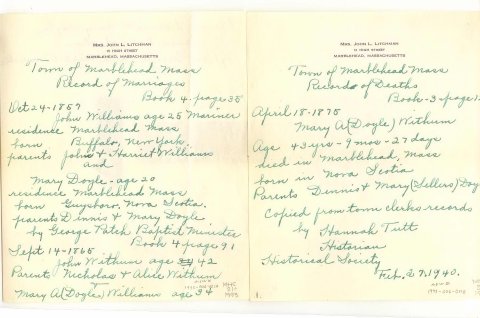 MRS. JOHN L. LITCHMAN
11 HIGH STREET
MARBLEHEAD, MASSACHUSETTS
Town of Marblehead Mass
Record of Marriages
Book 4 - page 35
Oct 24 - 1859
John Williams age 25 Mariner
residence Marblehead Mass
born Buffalo, New York.
parents John & Harriet Williams
and
Mary Doyle - age 20
residence Marblehead Mass
born Guysboro, Nova Scotia.
parents Dennis & Mary Doyle
by George Patch Baptist Minister
Book 4 page 91
Sept 14 - 1865
John Withum age 42
Parents Nicholas & Alice Withum
Mary A (Doyle) Williams age 34
MRS. JOHN L. LITCHMAN
11 HIGH STREET
MARBLEHEAD, MASSACHUSETTS
Town of Marblehead Mass
Record of Deaths
Book - 3 - page 1
April 18 - 1875
Mary A (Doyle) Withum
Age 43 yrs - 9 mos - 27 days
died in Marblehead, Mass
born in Nova Scotia
Parents Dennis & Mary (Sellers) Doy
Copied from town clerks records
by Hannah Tutt
Historian
Historical Society
Feb. 27, 1940.
1.